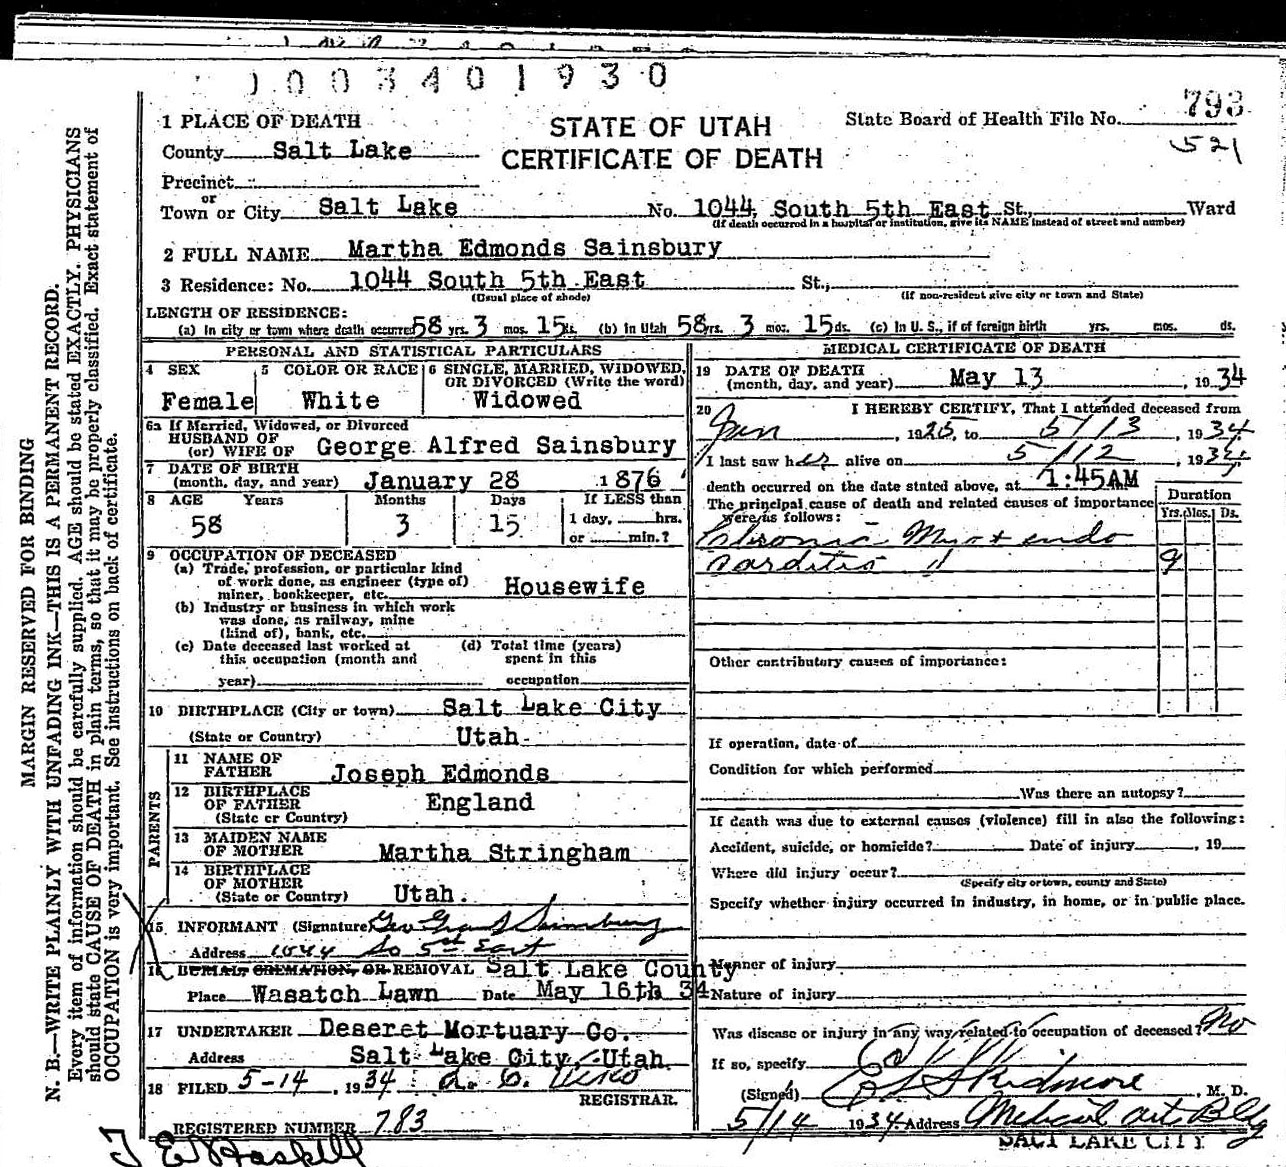 1003401930
793
521
1 PLACE OF DEATH
STATE OF UTAH
CERTIFICATE OF DEATH
State Board of Health File No.
County Salt Lake
Precinct
or
Town or City Salt Lake No. 1044, South 5th East St., Ward
(If death occurred in a hospital or institution, give its NAME instead of street and number)
2 FULL NAME Martha Edmonds Sainsbury
3 Residence: No. 1044 South 5th East St.,
(Usual place of abode) (If non-resident give city or town and State)
LENGTH OF RESIDENCE:
(a) In city or town where death occurred 58 yrs. 3 mos. 15 ds. (b) In Utah 58 yrs. 3 mos. 15 ds. (c) In U. S., if of foreign birth yrs. mos. ds.
PERSONAL AND STATISTICAL PARTICULARS
4 SEX
Female
5 COLOR OR RACE
White
6 SINGLE, MARRIED, WIDOWED, OR DIVORCED (Write the word)
Widowed
6a If Married, Widowed, or Divorced
HUSBAND OF
(or) WIFE OF George Alfred Sainsbury
7 DATE OF BIRTH
(month, day, and year) January 28 1876
8 AGE Years Months Days If LESS than
58 3 15 1 day, hrs.
or min.?
9 OCCUPATION OF DECEASED
(a) Trade, profession, or particular kind
of work done, as engineer (type of)
miner, bookkeeper, etc. Housewife
(b) Industry or business in which work
was done, as railway, mine
(kind of), bank, etc.
(c) Date deceased last worked at
this occupation (month and
year)
(d) Total time (years)
spent in this
occupation
10 BIRTHPLACE (City or town) Salt Lake City
(State or Country) Utah
PARENTS
11 NAME OF
FATHER Joseph Edmonds
12 BIRTHPLACE
OF FATHER England
(State or Country)
13 MAIDEN NAME
OF MOTHER Martha Stringham
14 BIRTHPLACE
OF MOTHER
(State or Country) Utah.
15 INFORMANT (Signature) Sainsbury
Address 1044 So 5th East
16 BURIAL, CREMATION, OR REMOVAL Salt Lake County
Place Wasatch Lawn Date May 16th 34
17 UNDERTAKER Deseret Mortuary Co.
Address Salt Lake City, Utah
18 FILED 5-14, 1934
REGISTRAR.
REGISTERED NUMBER 783
T E Haskell
MEDICAL CERTIFICATE OF DEATH
19 DATE OF DEATH
(month, day, and year) May 13, 1934
20 I HEREBY CERTIFY, That I attended deceased from
Jan, 1925, to 5/13, 1934
I last saw her alive on 5/12, 1934
death occurred on the date stated above, at 1:45AM
The principal cause of death and related causes of importance
were as follows:
Duration
Yrs. Mos. Ds.
Chronic Myo + endo
carditis " 9
Other contributory causes of importance:
If operation, date of
Condition for which performed
Was there an autopsy?
If death was due to external causes (violence) fill in also the following:
Accident, suicide, or homicide? Date of injury, 19
Where did injury occur?
(Specify city or town, county and State)
Specify whether injury occurred in industry, in home, or in public place.
Manner of injury
Nature of injury
Was disease or injury in any way related to occupation of deceased? No
If so, specify
(Signed) Skidmore, M. D.
5/14 1934 Address Medical Arts Bldg
SALT LAKE CITY
MARGIN RESERVED FOR BINDING
N. B.—WRITE PLAINLY WITH UNFADING INK—THIS IS A PERMANENT RECORD.
Every item of information should be carefully supplied. AGE should be stated EXACTLY. PHYSICIANS
should state CAUSE OF DEATH in plain terms, so that it may be properly classified. Exact statement of
OCCUPATION is very important. See instructions on back of certificate.